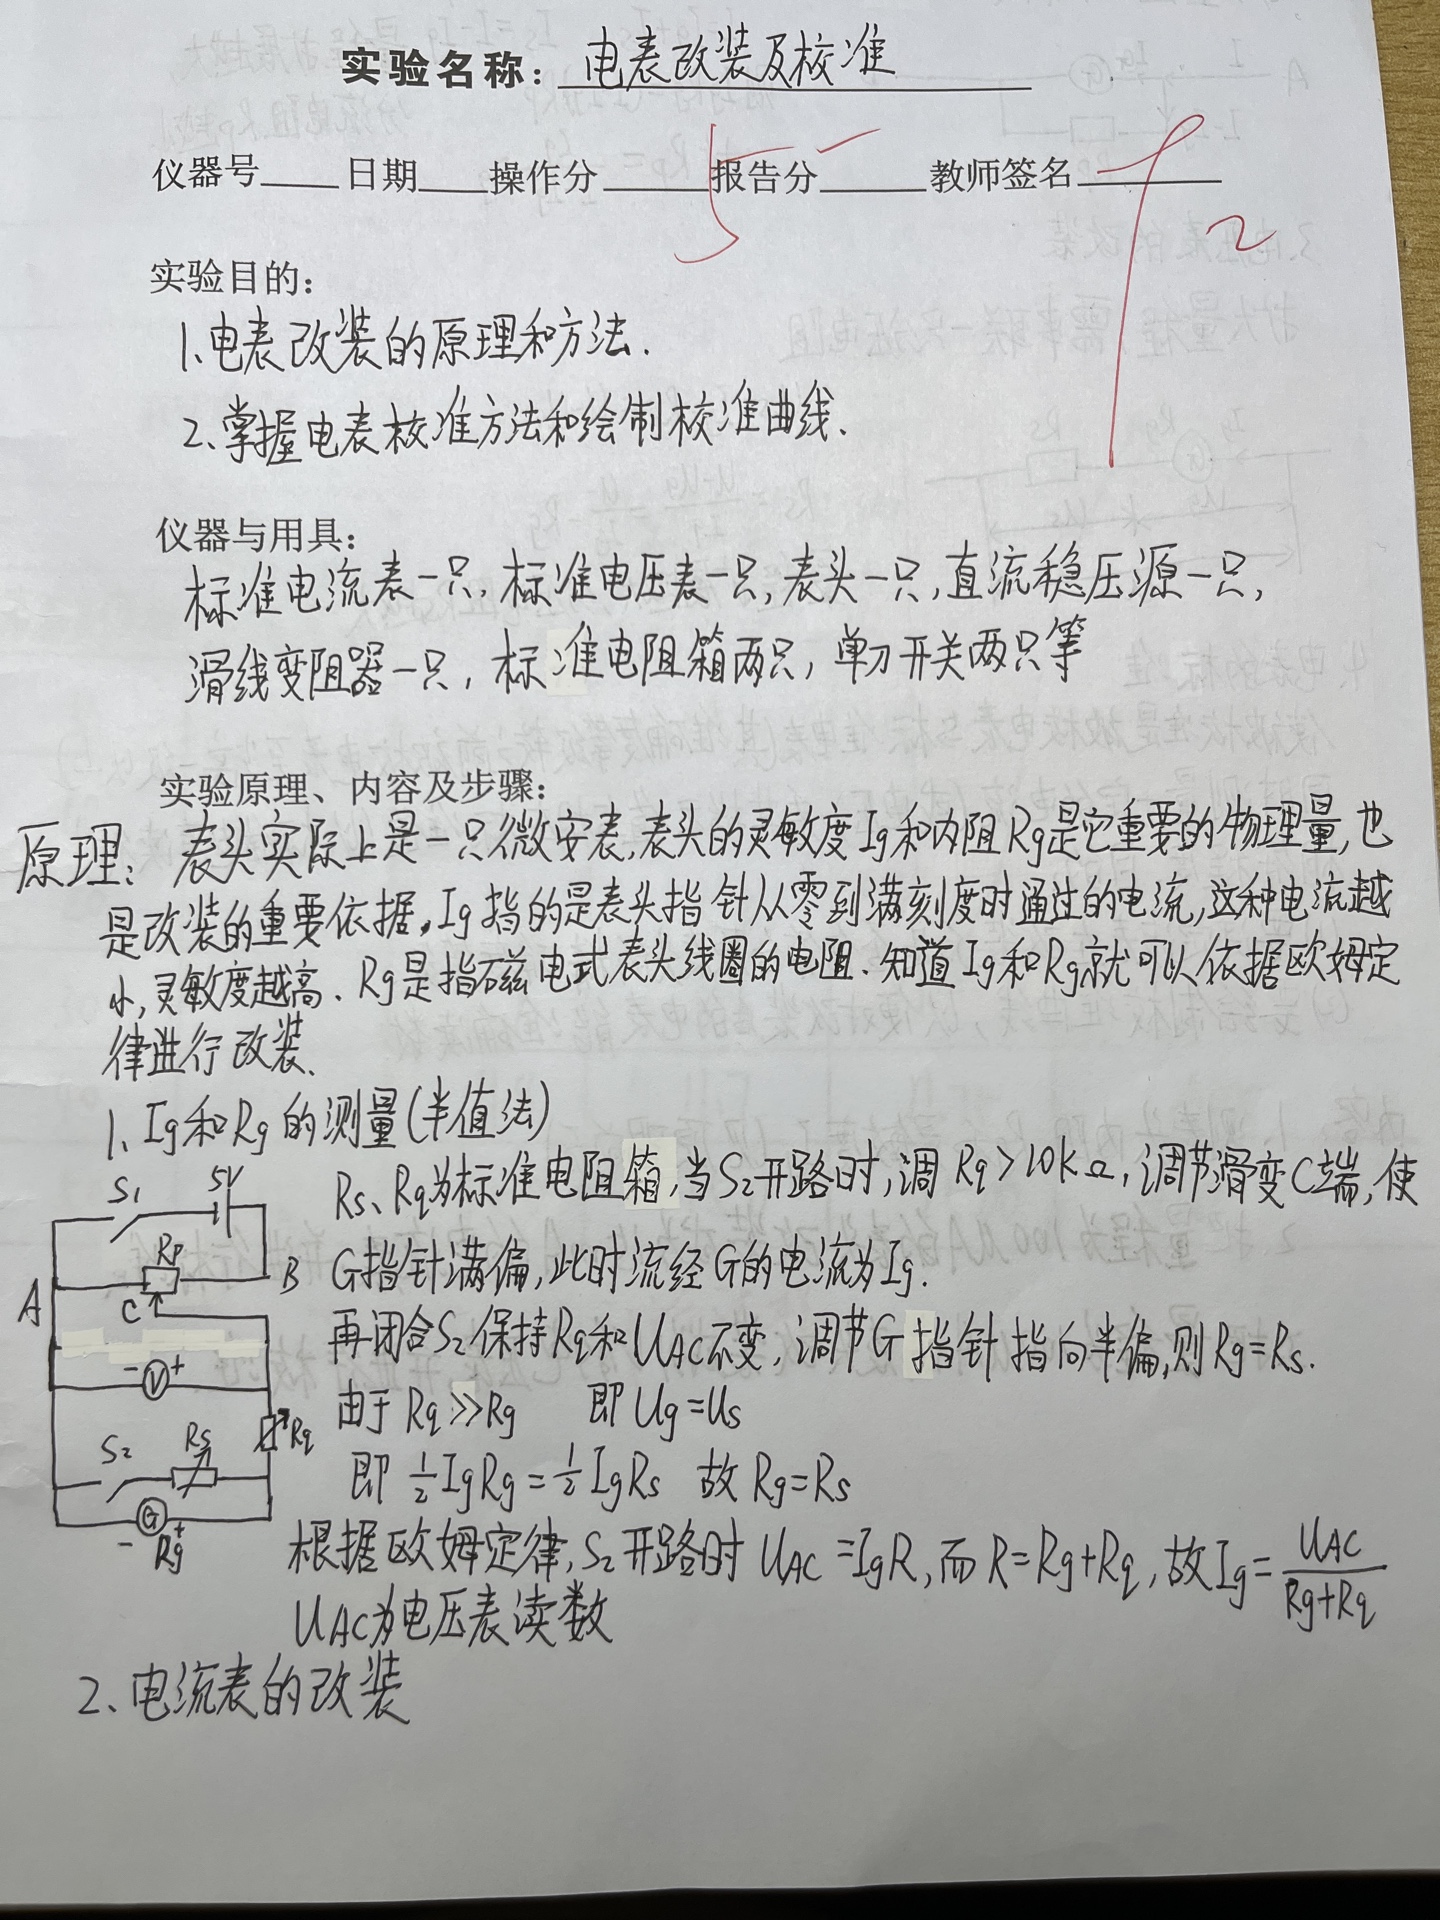 实验名称：电表改装及校准
仪器号____日期____操作分____报告分____教师签名____
5
2
实验目的：
1、电表改装的原理和方法.
2、掌握电表校准方法和绘制校准曲线.
仪器与用具：
标准电流表一只,标准电压表一只,表头一只,直流稳压源一只,
滑线变阻器一只,标准电阻箱两只,单刀开关两只等
实验原理、内容及步骤：
原理：表头实际上是一只微安表,表头的灵敏度Ig和内阻Rg是它重要的物理量,也
是改装的重要依据.Ig指的是表头指针从零到满刻度时通过的电流,这种电流越
小,灵敏度越高.Rg是指磁电式表头线圈的电阻.知道Ig和Rg就可以依据欧姆定
律进行改装.
1、Ig和Rg的测量(半值法)
Rs、Rq为标准电阻箱,当S2开路时,调Rq>10kΩ,调节滑变C端,使
G指针满偏,此时流经G的电流为Ig.
再闭合S2保持Rq和UAC不变,调节G指针指向半偏,则Rg=Rs.
由于Rq≫Rg 即Ug=Us
即 1/2IgRg=1/2IgRs 故Rg=Rs
根据欧姆定律,S2开路时UAC=IgR,而R=Rg+Rq,故Ig=UAC/(Rg+Rq)
UAC为电压表读数
S1 5V
RP
A C B
- V +
Rq
S2 Rs
G
- Rg +
2、电流表的改装